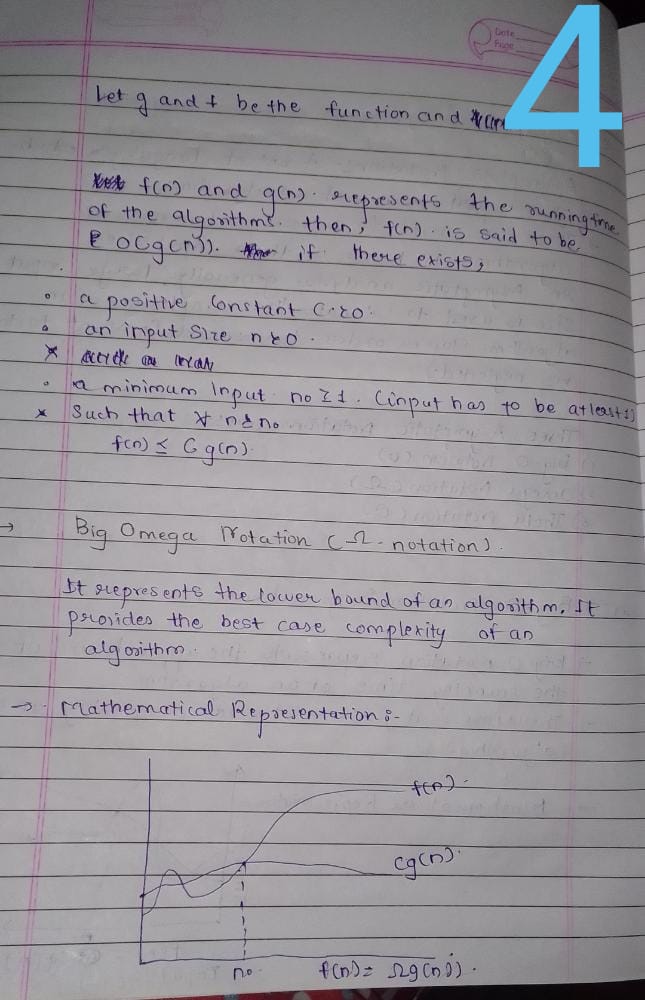 4
Date
Page
Let g and f be the function and
f(n) and g(n). represents the running time
of the algorithms. then, f(n) is said to be
O(g(n)). if there exists,
a positive constant C > 0.
an input size n > 0.
a minimum input no ≥ 1. (input has to be atleast 1)
Such that ∀ n ≥ no
f(n) ≤ C g(n).
→ Big Omega Notation (Ω-notation).
It represents the lower bound of an algorithm. It
provides the best case complexity of an
algorithm.
→ Mathematical Representation:-
f(n).
cg(n).
no. f(n) = Ωg(n).